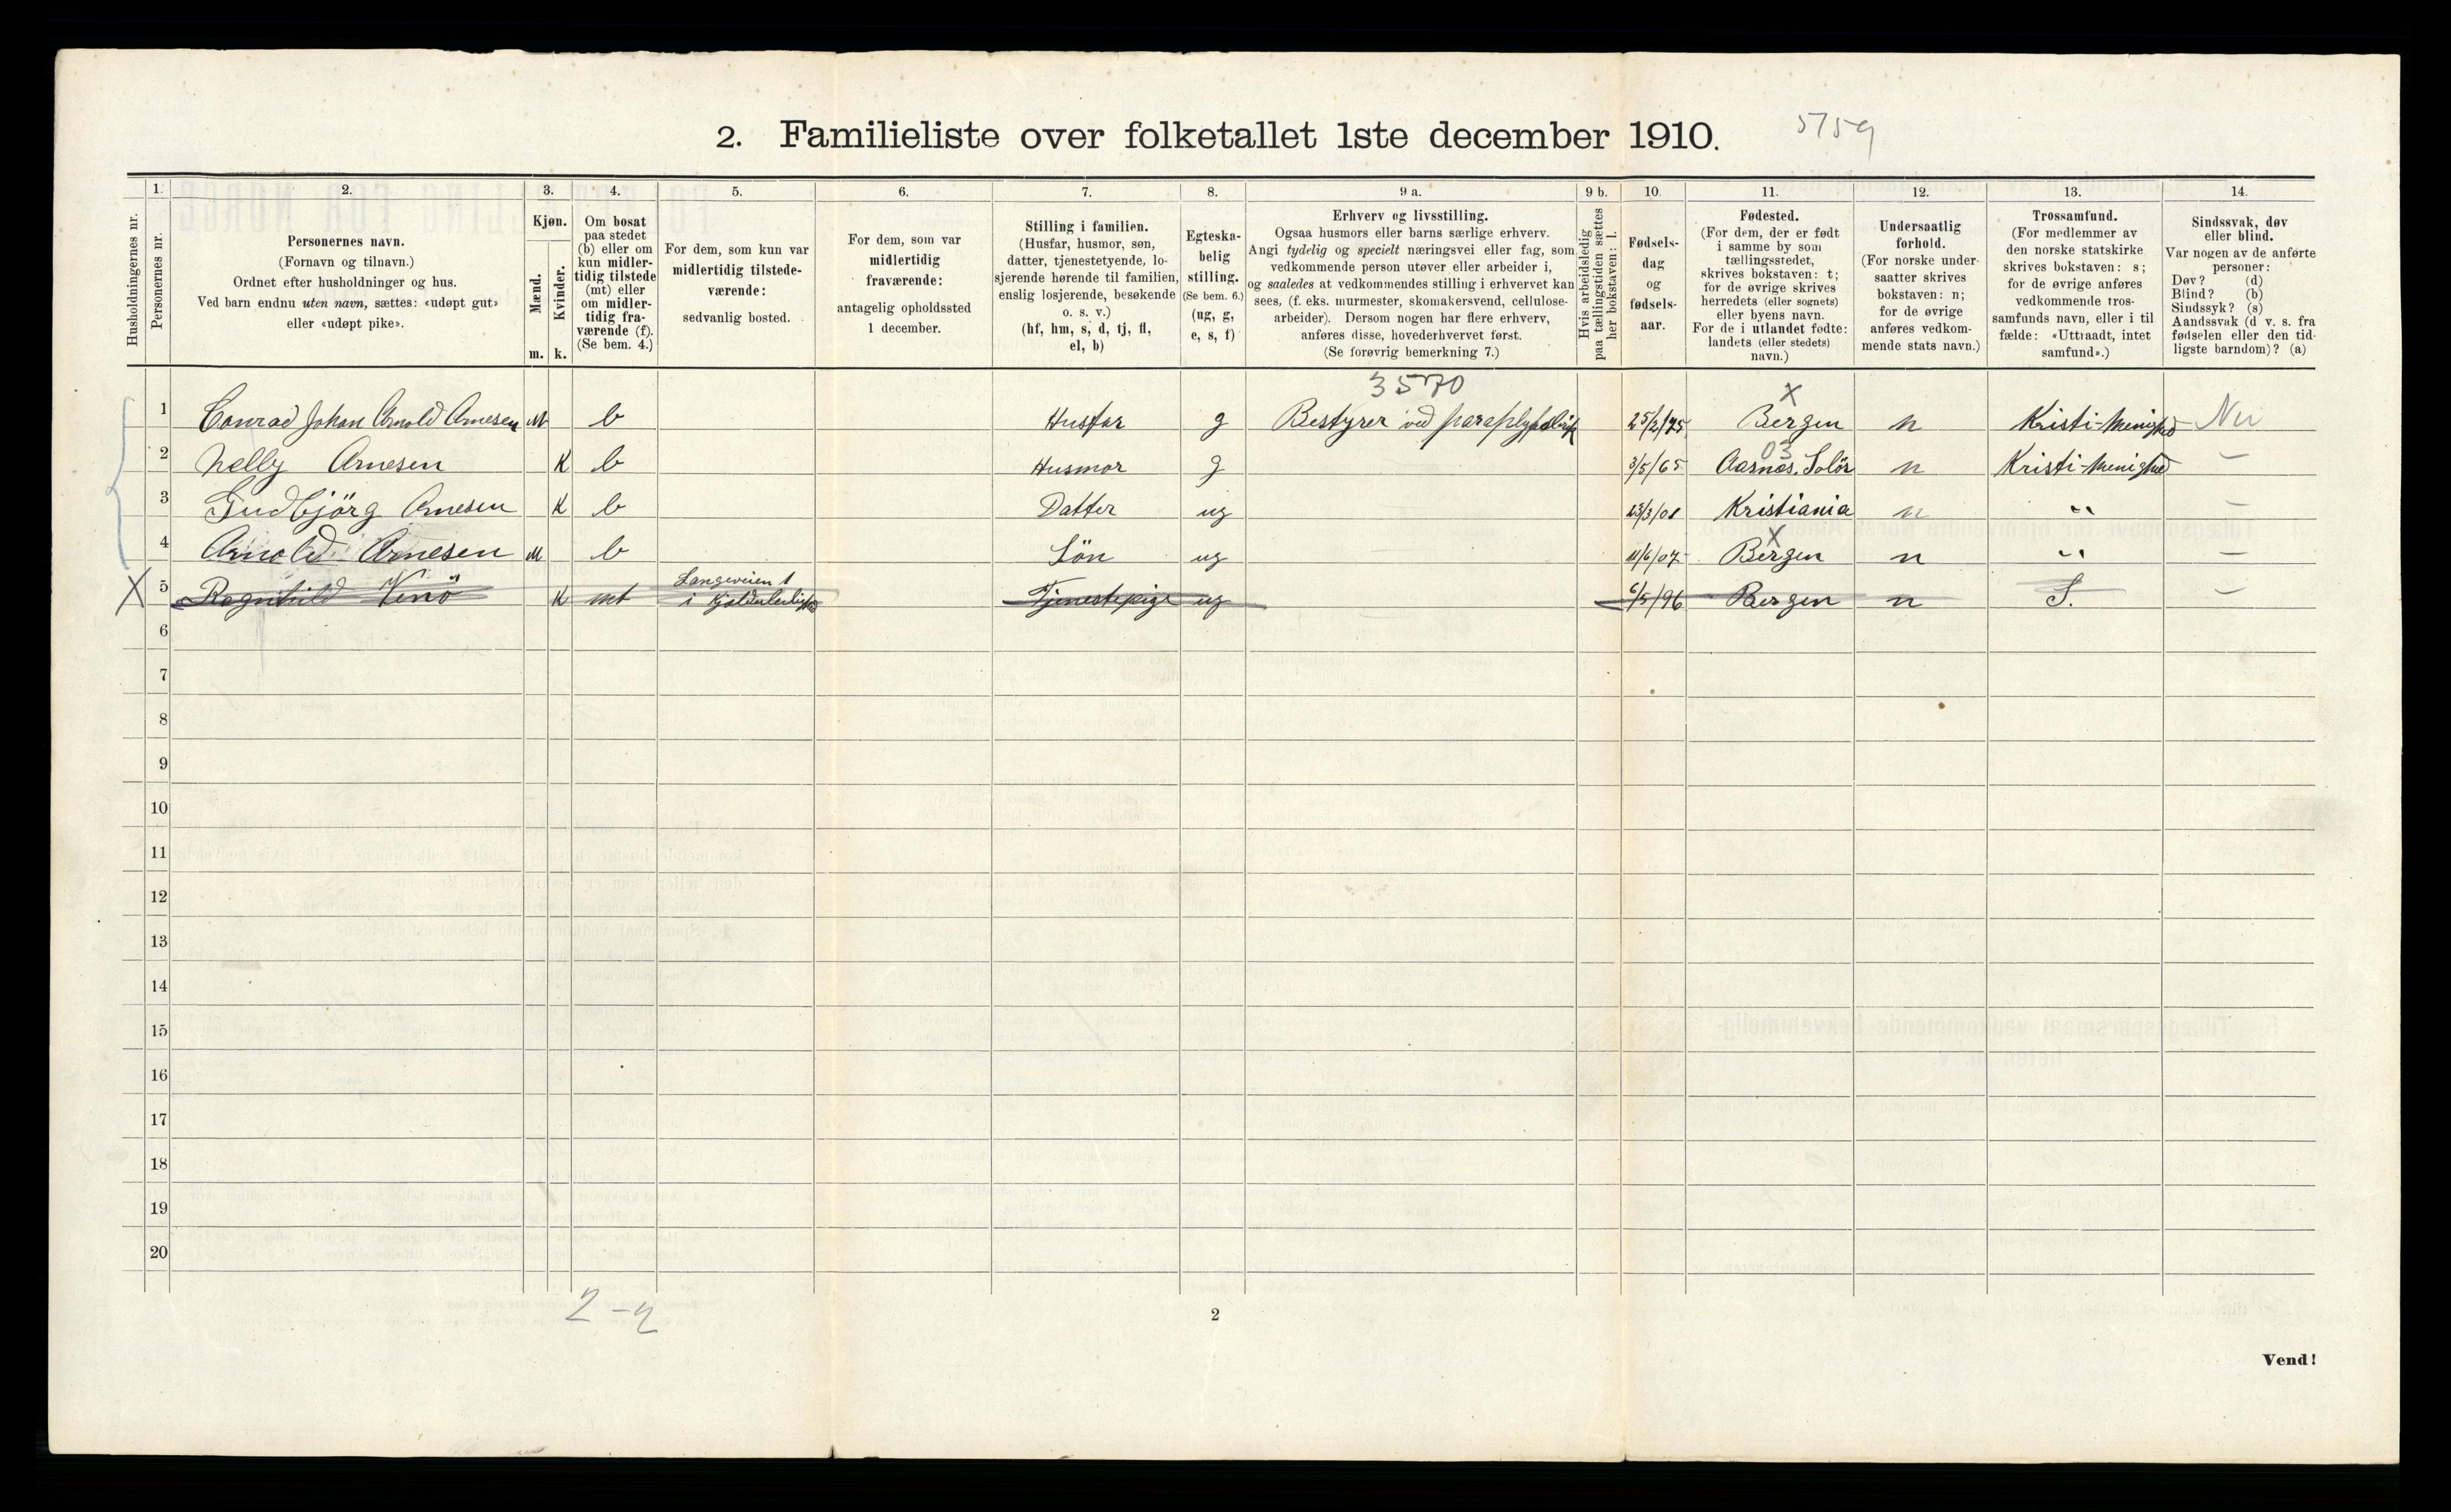 2. Familieliste over folketallet 1ste december 1910.
5759
Husholdningernes nr.
1.
Personernes nr.
2.
Personernes navn.
(Fornavn og tilnavn.)
Ordnet efter husholdninger og hus.
Ved barn endnu uten navn, sættes: «udøpt gut»
eller «udøpt pike».
3.
Kjøn.
Mænd.
m.
Kvinder.
k.
4.
Om bosat
paa stedet
(b) eller om
kun midler-
tidig tilstede
(mt) eller
om midler-
tidig fra-
værende (f).
(Se bem. 4.)
5.
For dem, som kun var
midlertidig tilstede-
værende:
sedvanlig bosted.
6.
For dem, som var
midlertidig
fraværende:
antagelig opholdssted
1 december.
7.
Stilling i familien.
(Husfar, husmor, søn,
datter, tjenestetyende, lo-
sjerende hørende til familien,
enslig losjerende, besøkende
o. s. v.)
(hf, hm, s, d, tj, fl,
el, b)
8.
Egteska-
belig
stilling.
(Se bem. 6.)
(ug, g,
e, s, f)
9 a.
Erhverv og livsstilling.
Ogsaa husmors eller barns særlige erhverv.
Angi tydelig og specielt næringsvei eller fag, som
vedkommende person utøver eller arbeider i,
og saaledes at vedkommendes stilling i erhvervet kan
sees, (f. eks. murmester, skomakersvend, cellulose-
arbeider). Dersom nogen har flere erhverv,
anføres disse, hovederhvervet først.
(Se forøvrig bemerkning 7.)
9 b.
Hvis arbeidsledig
paa tællingstiden sættes
her bokstaven: l.
10.
Fødsels-
dag
og
fødsels-
aar.
11.
Fødested.
(For dem, der er født
i samme by som
tællingsstedet,
skrives bokstaven: t;
for de øvrige skrives
herredets (eller sognets)
eller byens navn.
For de i utlandet fødte:
landets (eller stedets)
navn.)
12.
Undersaatlig
forhold.
(For norske under-
saatter skrives
bokstaven: n;
for de øvrige
anføres vedkom-
mende stats navn.)
13.
Trossamfund.
(For medlemmer av
den norske statskirke
skrives bokstaven: s;
for de øvrige anføres
vedkommende tros-
samfunds navn, eller i til
fælde: «Uttraadt, intet
samfund».)
14.
Sindssvak, døv
eller blind.
Var nogen av de anførte
personer:
Døv? (d)
Blind? (b)
Sindssyk? (s)
Aandssvak (d v. s. fra
fødselen eller den tid-
ligste barndom)? (a)
3570
1 Conrad Johan Arnold Arnesen M b Husfar g Bestyrer ved paraplyfabrik 25/2/75 X Bergen n Kristi-Menighed
2 Nelly Arnesen K b Husmor g 3/5/65 03 Aasnes. Solör n Kristi-Menighed –
3 Gudbjörg Arnesen K b Datter ug 23/3/01 Kristiania n " –
4 Arnold Arnesen M b Sön ug 11/6/07 X Bergen n " –
X 5 Ragnhild Venö K mt Langeveien 1 i Kjelderleilighed Tjenestepige ug 6/5/96 Bergen n S. –
6
7
8
9
10
11
12
13
14
15
16
17
18
19
20
2
Vend!